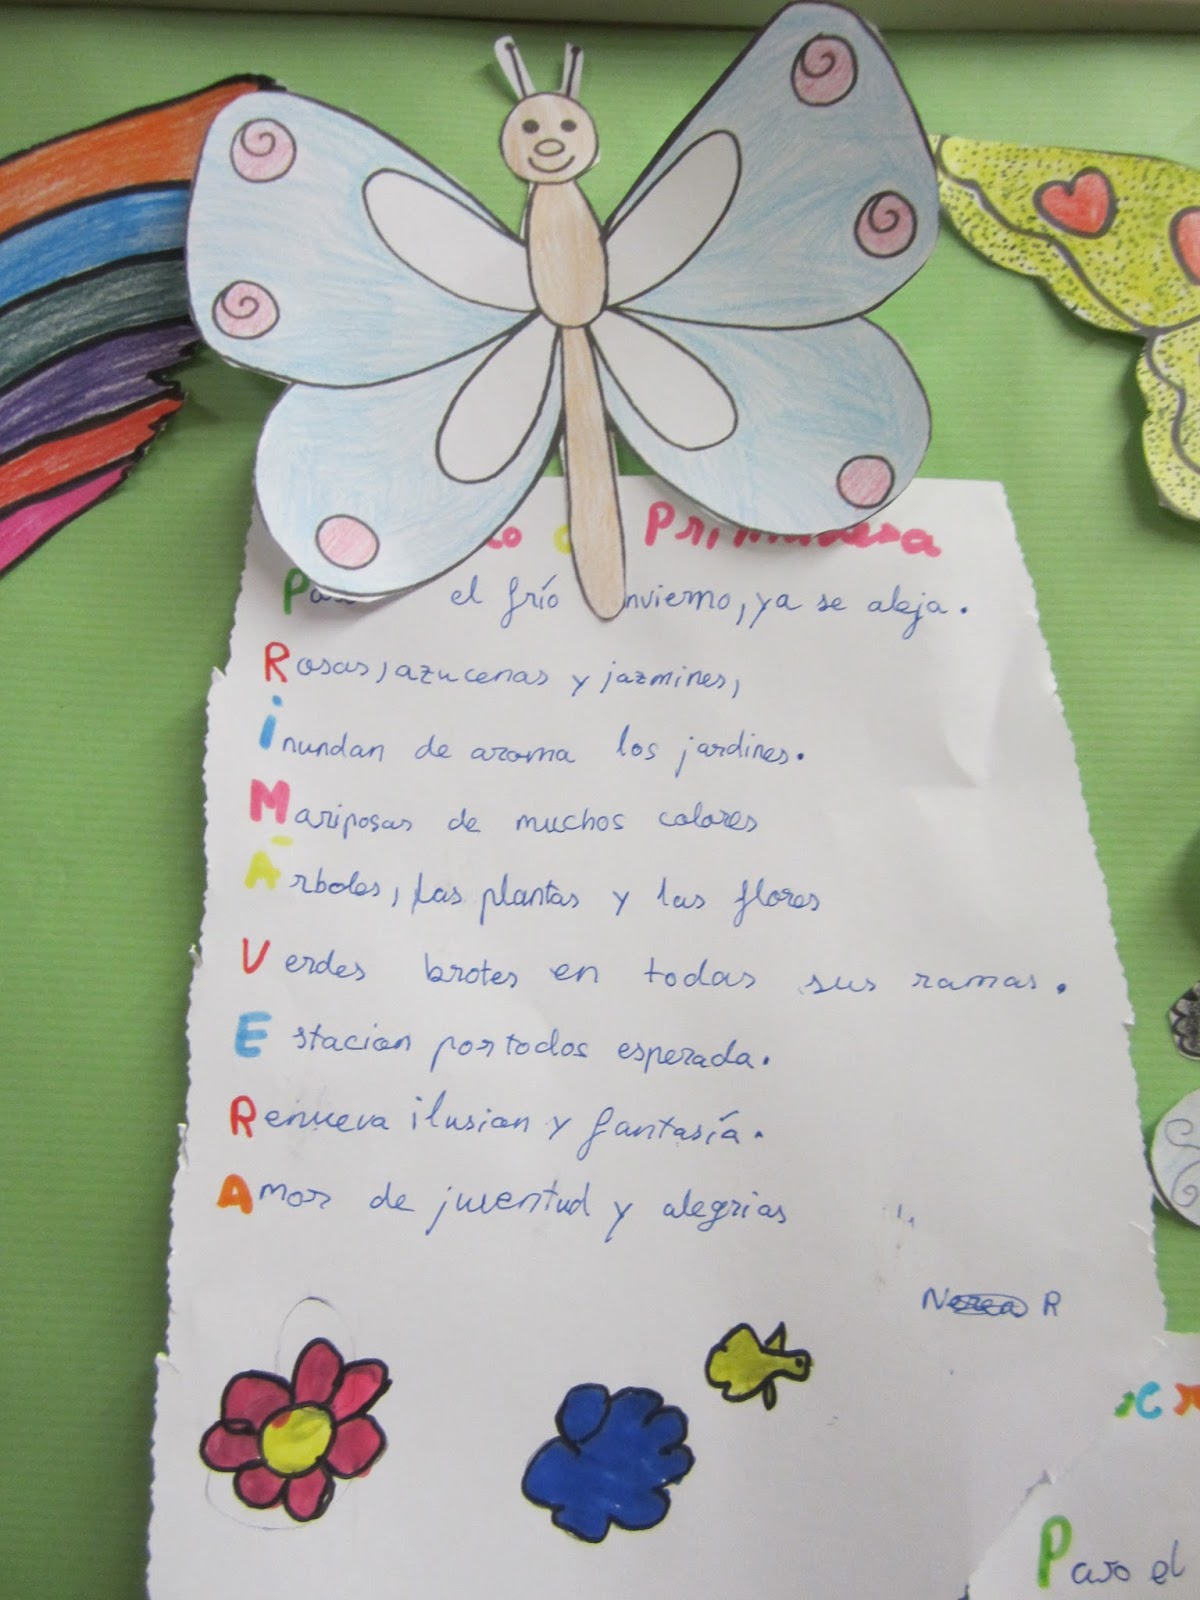 Primavera
el frío invierno, ya se aleja.
Rosas, azucenas y jazmines,
inundan de aroma los jardines.
Mariposas de muchos colores
Árboles, las plantas y las flores
Verdes brotes en todas sus ramas.
Estacion por todos esperada.
Renueva ilusion y fantasía.
Amor de juventud y alegrias
Nerea R
Paso el